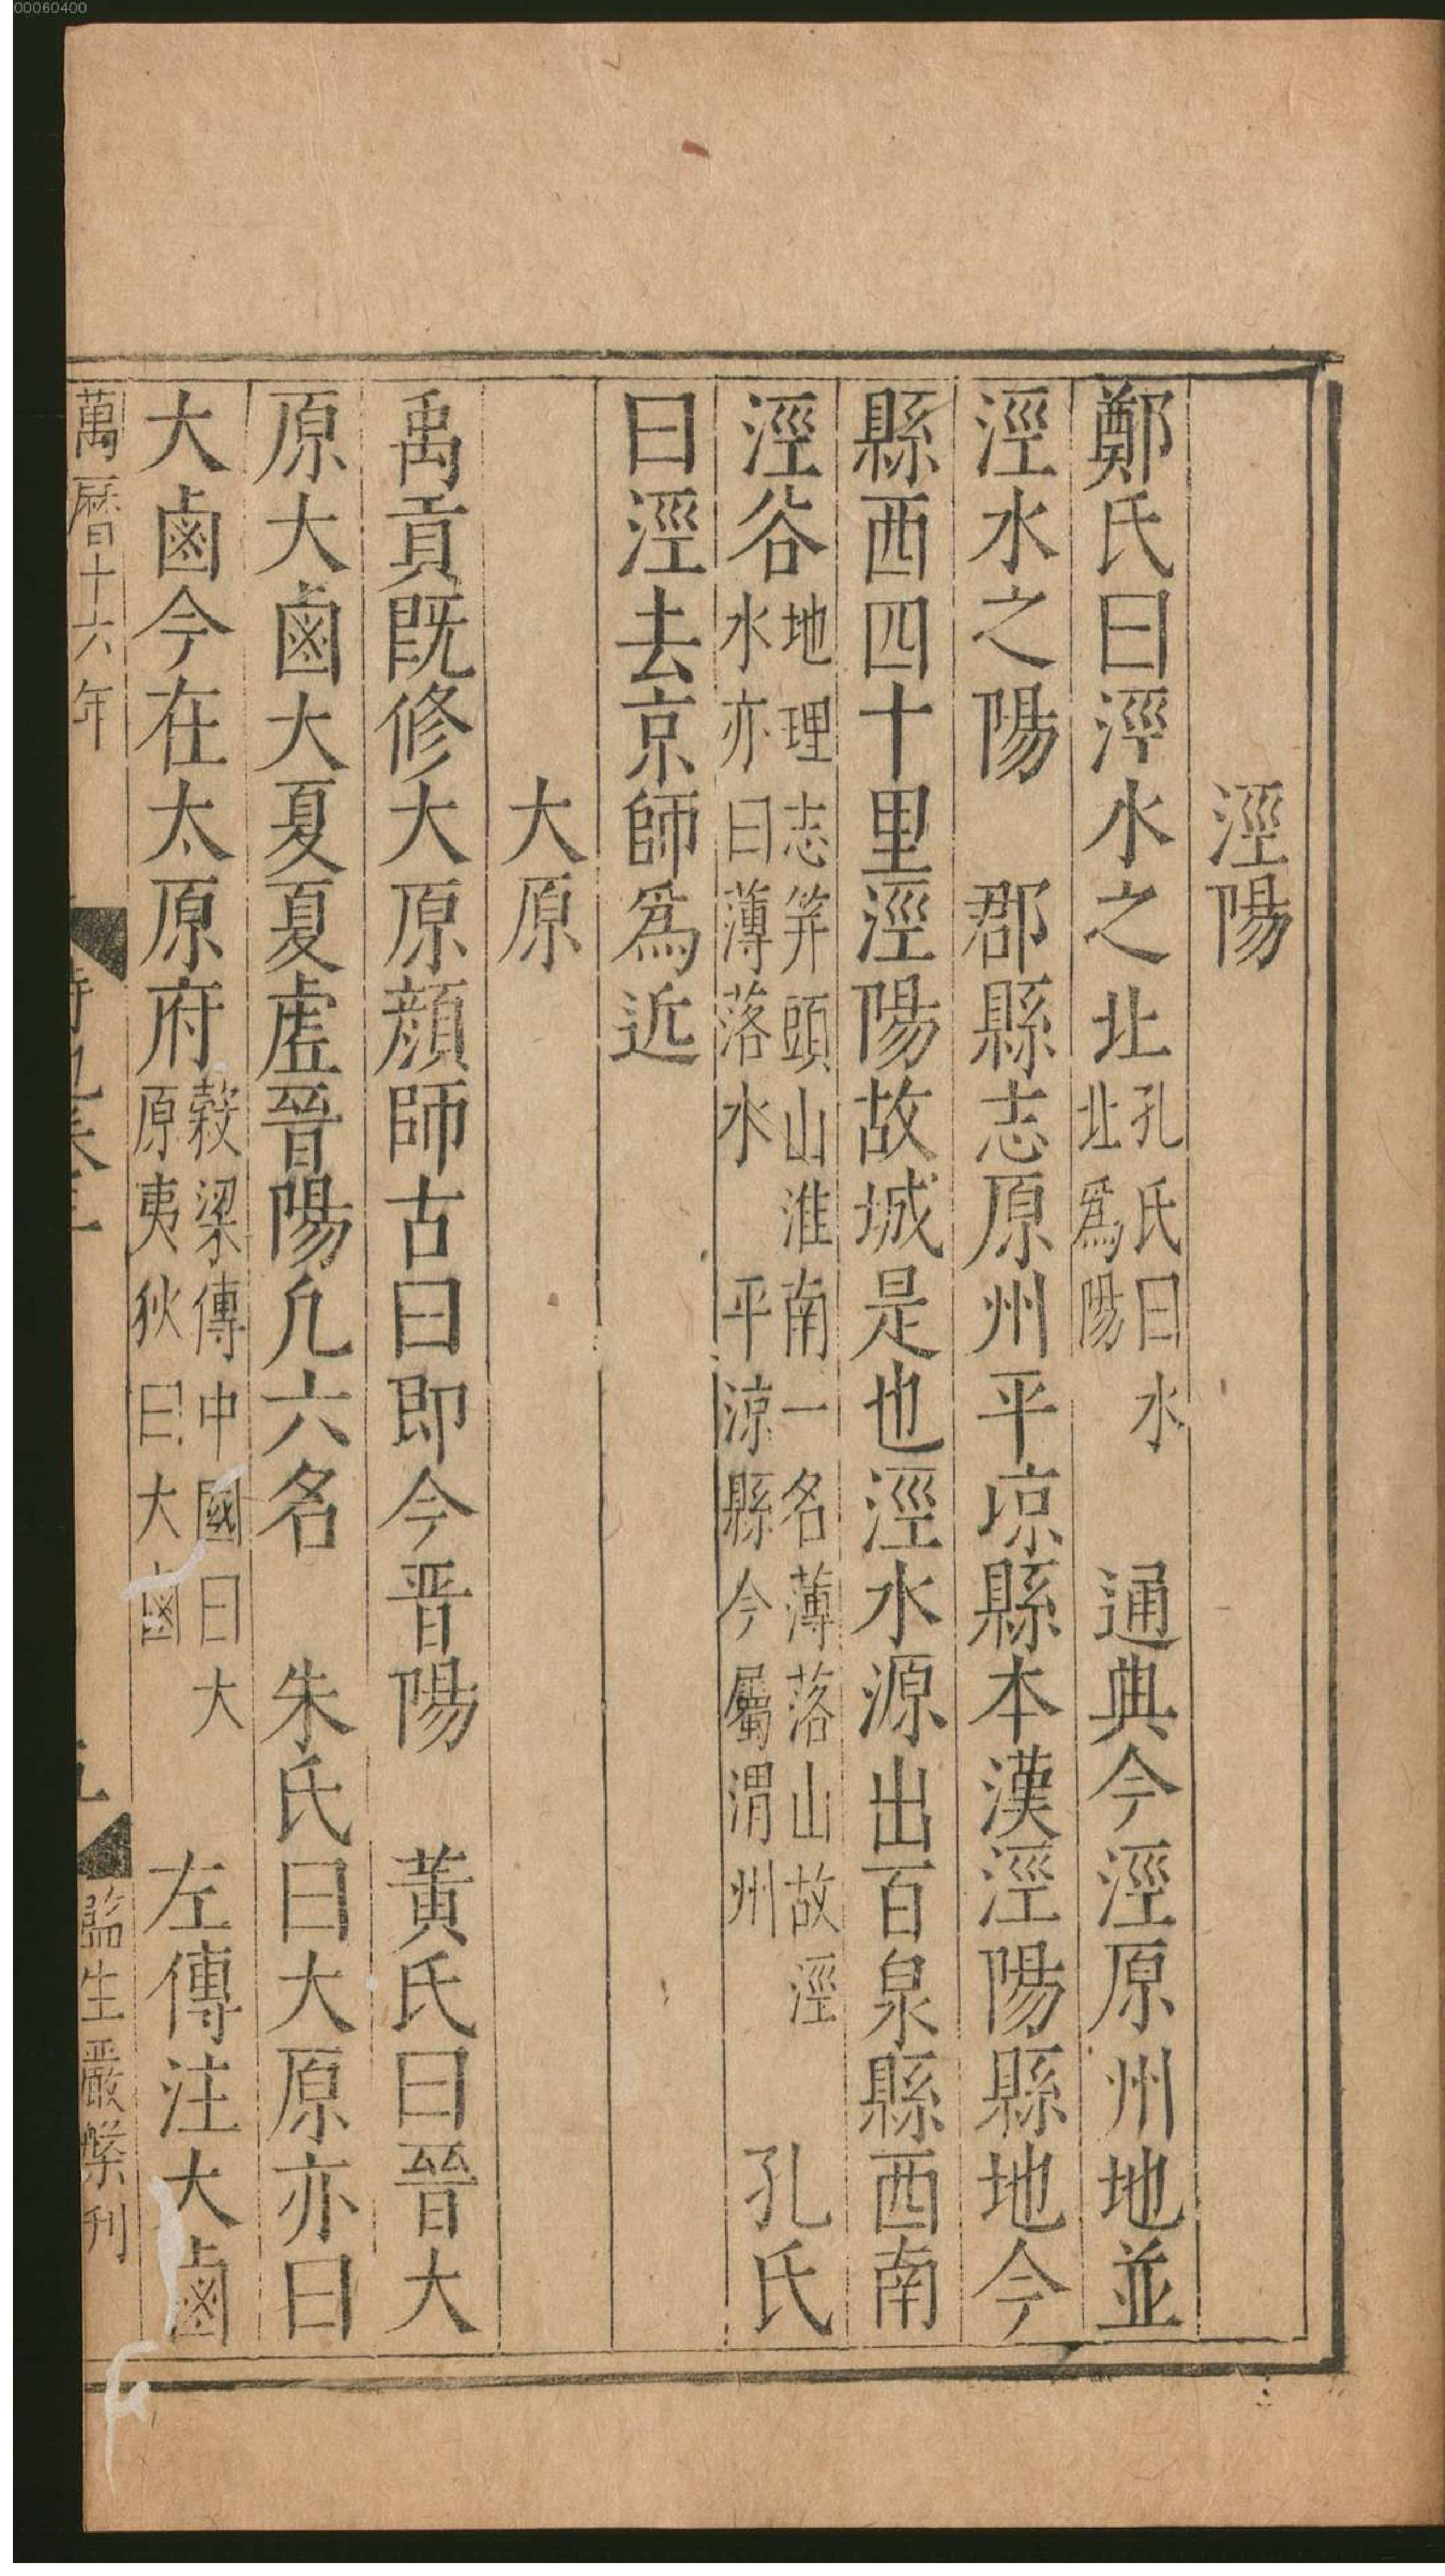 00060400
涇陽
鄭氏曰涇水之北孔氏曰水北爲陽 通典今涇原州地並
涇水之陽 郡縣志原州平凉縣本漢涇陽縣地今
縣西四十里涇陽故城是也涇水源出百泉縣西南
涇谷地理志筓頭山淮南一名薄落山故涇水亦曰薄落水 平涼縣今屬渭州 孔氏
曰涇去京師爲近
大原
禹貢既修大原顔師古曰即今晋陽 黃氏曰晉大
原大鹵大夏夏虛晉陽凢六名 朱氏曰大原亦曰
大鹵今在太原府穀梁傳中國曰大原夷狄曰大鹵 左傳注大鹵
萬曆十六年
監生嚴槃刊